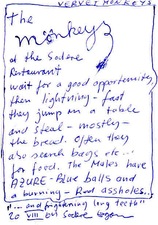 VERVET MONKEYS
The
monkeys
at the Sodere
Restaurant
wait for a good opportunity
then lightning-fast
they jump on a table
and steal – mostly –
the bread. Often they
also search bags etc...
for food. The Males have
AZURE-Blue balls and
a burning – Red assholes...
"... and frightening long teeth"
20 VIII Sodere